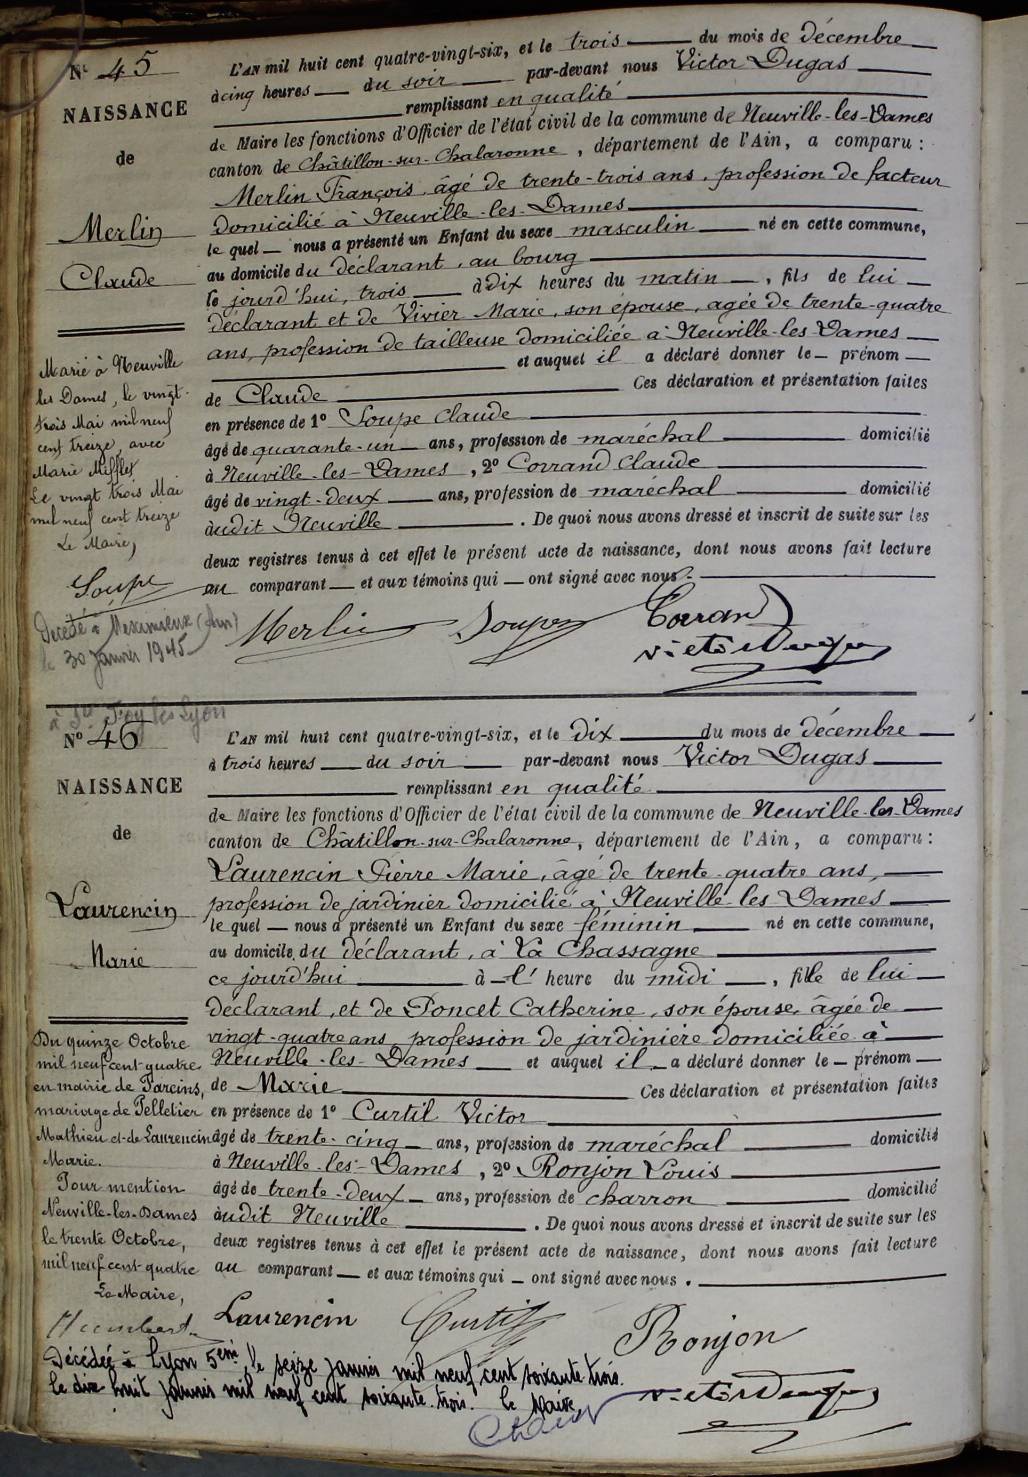 N° 45
NAISSANCE
de
Merlin
Claude
Marié à Neuville
les Dames, le vingt-
trois Mai mil neuf
cent treize, avec
Marie Mifflet
Le vingt trois Mai
mil neuf cent treize
Le Maire,
Soupe
Décédé à Meximieux (Ain)
le 30 Janvier 1945
L'AN mil huit cent quatre-vingt-six, et le trois du mois de décembre
à cinq heures du soir par-devant nous Victor Dugas
remplissant en qualité
de Maire les fonctions d'Officier de l'état civil de la commune de Neuville-les-Dames
canton de Châtillon-sur-Chalaronne, département de l'Ain, a comparu :
Merlin François, âgé de trente-trois ans, profession de facteur
domicilié à Neuville-les-Dames
le quel nous a présenté un Enfant du sexe masculin né en cette commune,
au domicile du déclarant, au bourg
le jourd'hui, trois à dix heures du matin, fils de lui
déclarant et de Vivier Marie, son épouse, agée de trente-quatre
ans, profession de tailleuse domiciliée à Neuville-les-Dames
et auquel il a déclaré donner le prénom
de Claude Ces déclaration et présentation faites
en présence de 1° Soupe Claude
âgé de quarante-un ans, profession de maréchal domicilié
à Neuville-les-Dames, 2° Corrand Claude
âgé de vingt-deux ans, profession de maréchal domicilié
audit Neuville. De quoi nous avons dressé et inscrit de suite sur les
deux registres tenus à cet effet le présent acte de naissance, dont nous avons fait lecture
au comparant et aux témoins qui ont signé avec nous.
Merlin Soupe Corrand
Victor Dugas
à Ste Foy les Lyon
N° 46
NAISSANCE
de
Laurencin
Marie
Du quinze Octobre
mil neuf cent quatre
en mairie de Parcins,
mariage de Pelletier
Mathieu et de Laurencin
Marie.
Pour mention
Neuville-les-Dames
le trente Octobre,
mil neuf cent quatre
Le Maire,
Humbert
L'AN mil huit cent quatre-vingt-six, et le dix du mois de décembre
à trois heures du soir par-devant nous Victor Dugas
remplissant en qualité
de Maire les fonctions d'Officier de l'état civil de la commune de Neuville-les-Dames
canton de Châtillon-sur-Chalaronne, département de l'Ain, a comparu :
Laurencin Pierre Marie, âgé de trente-quatre ans,
profession de jardinier domicilié à Neuville-les-Dames
le quel nous a présenté un Enfant du sexe féminin né en cette commune,
au domicile du déclarant, à La Chassagne
ce jourd'hui à l' heure du midi, fille de lui
déclarant, et de Poncet Catherine, son épouse, âgée de
vingt-quatre ans profession de jardinière domiciliée à
Neuville-les-Dames et auquel il a déclaré donner le prénom
de Marie Ces déclaration et présentation faites
en présence de 1° Curtil Victor
âgé de trente-cinq ans, profession de maréchal domicilié
à Neuville-les-Dames, 2° Ronjon Louis
âgé de trente-deux ans, profession de charron domicilié
audit Neuville. De quoi nous avons dressé et inscrit de suite sur les
deux registres tenus à cet effet le présent acte de naissance, dont nous avons fait lecture
au comparant et aux témoins qui ont signé avec nous.
Laurencin Curtil Ronjon
Victor Dugas
Décédée à Lyon 5eme, le seize janvier mil neuf cent soixante trois.
le dix huit janvier mil neuf cent soixante trois. Le Maire